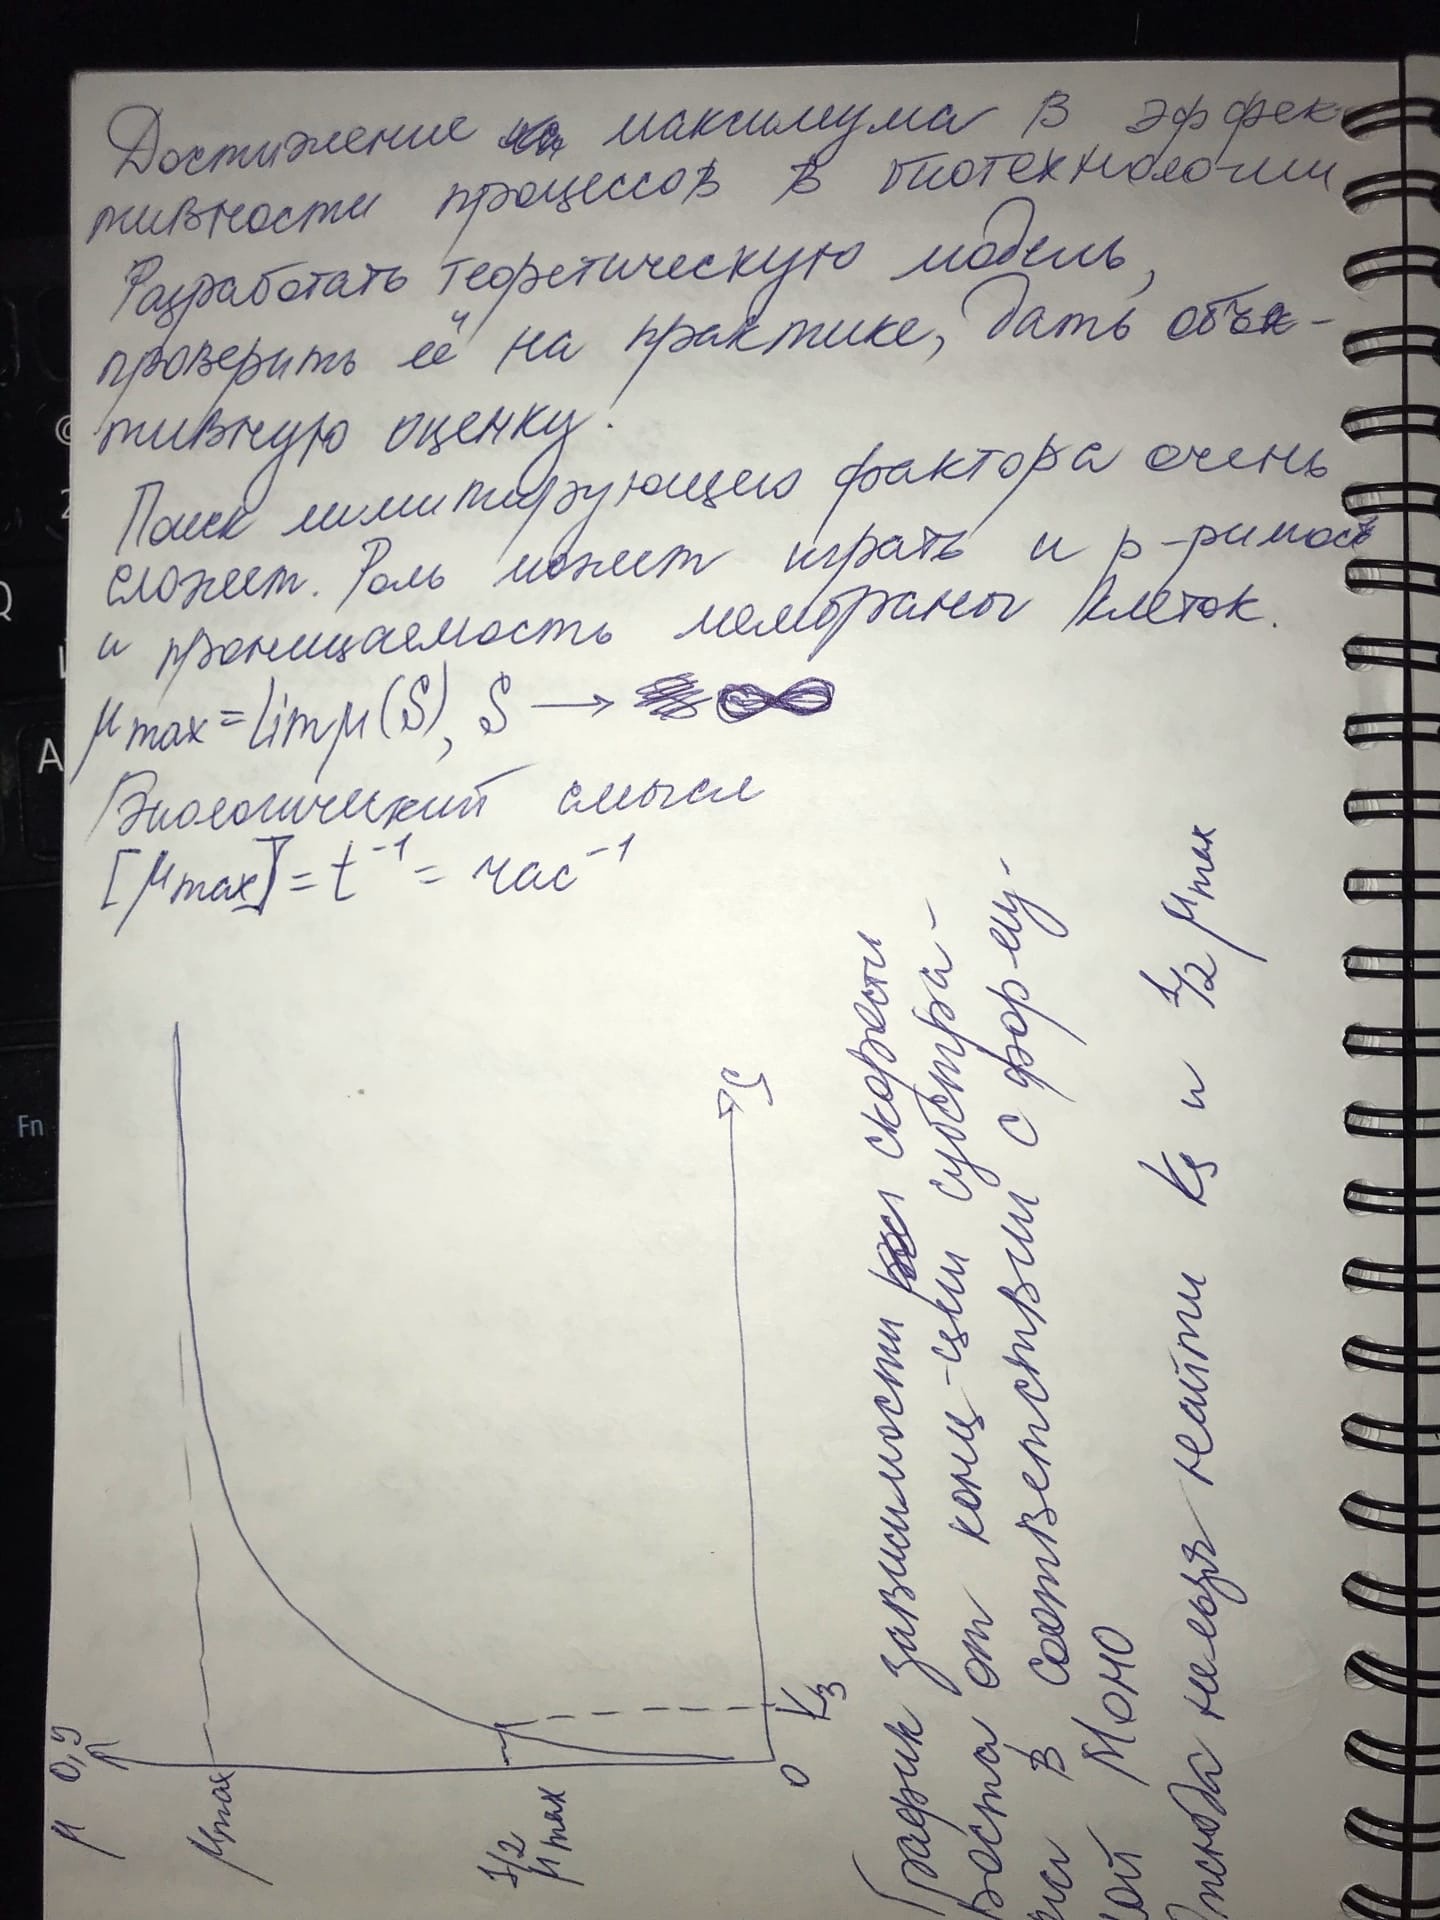 Достижение максимума в эффек-
тивности процессов в биотехнологии
Разработать теоретическую модель,
проверить её на практике, дать объек-
тивную оценку.
Поиск лимитирующего фактора очень
сложен. Роль может играть и р-римость
и проницаемость мембраны клеток.
μmax = lim μ(S), S → ∞
Биологический смысл
[μmax] = t⁻¹ = час⁻¹
μ 0,9
μmax
1/2
μmax
0
K3
S
График зависимости скорости
роста от конц-ции субстра-
та в соответствии с форму-
лой Моно
Отсюда нельзя найти Ks и 1/2 μmax
Fn
A
Q
2